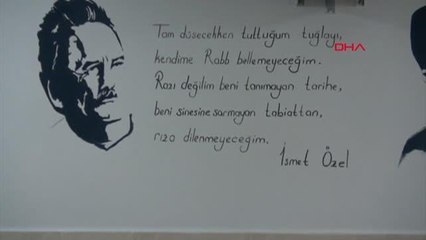 Tam düşecekken tuttuğum tuğlayı,
kendime Rabb bellemeyeceğim.
Razı değilim beni tanımayan tarihe,
beni sinesine sarmayan tabiattan,
rıza dilenmeyeceğim.
İsmet Özel
DHA